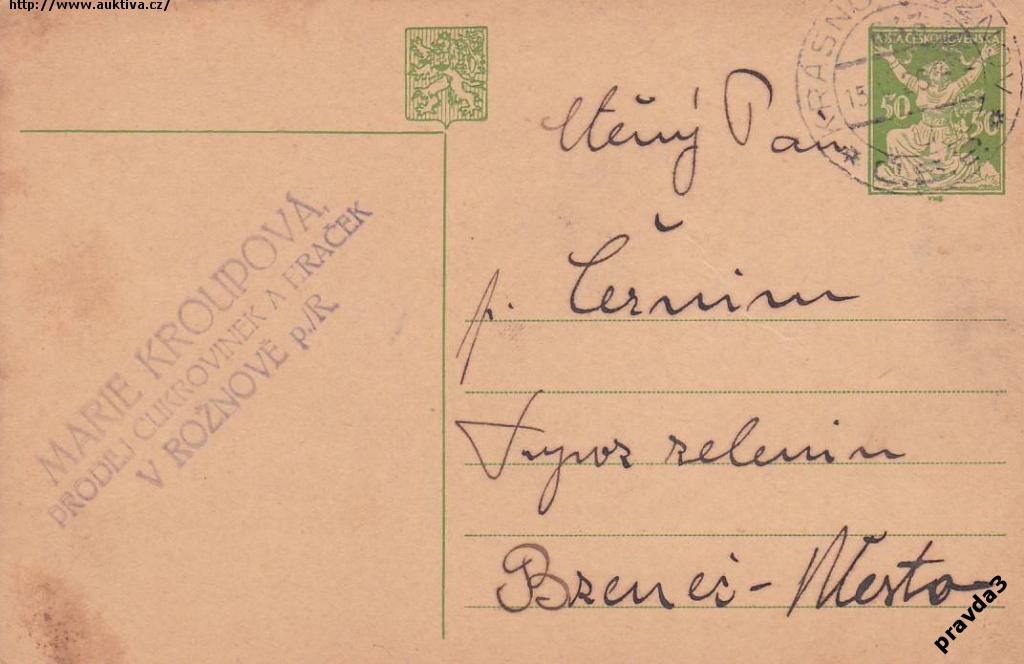 http://www.auktiva.cz/
POŠTA ČESKOSLOVENSKÁ
50
50
KRÁSNO
15
Ctěný Pan
p. Černín
Vývoz zelenin
Bzenec-Město
MARIE KROUPOVÁ,
PRODEJ CUKROVINEK A HRAČEK
V ROŽNOVĚ p./R.
pravda3